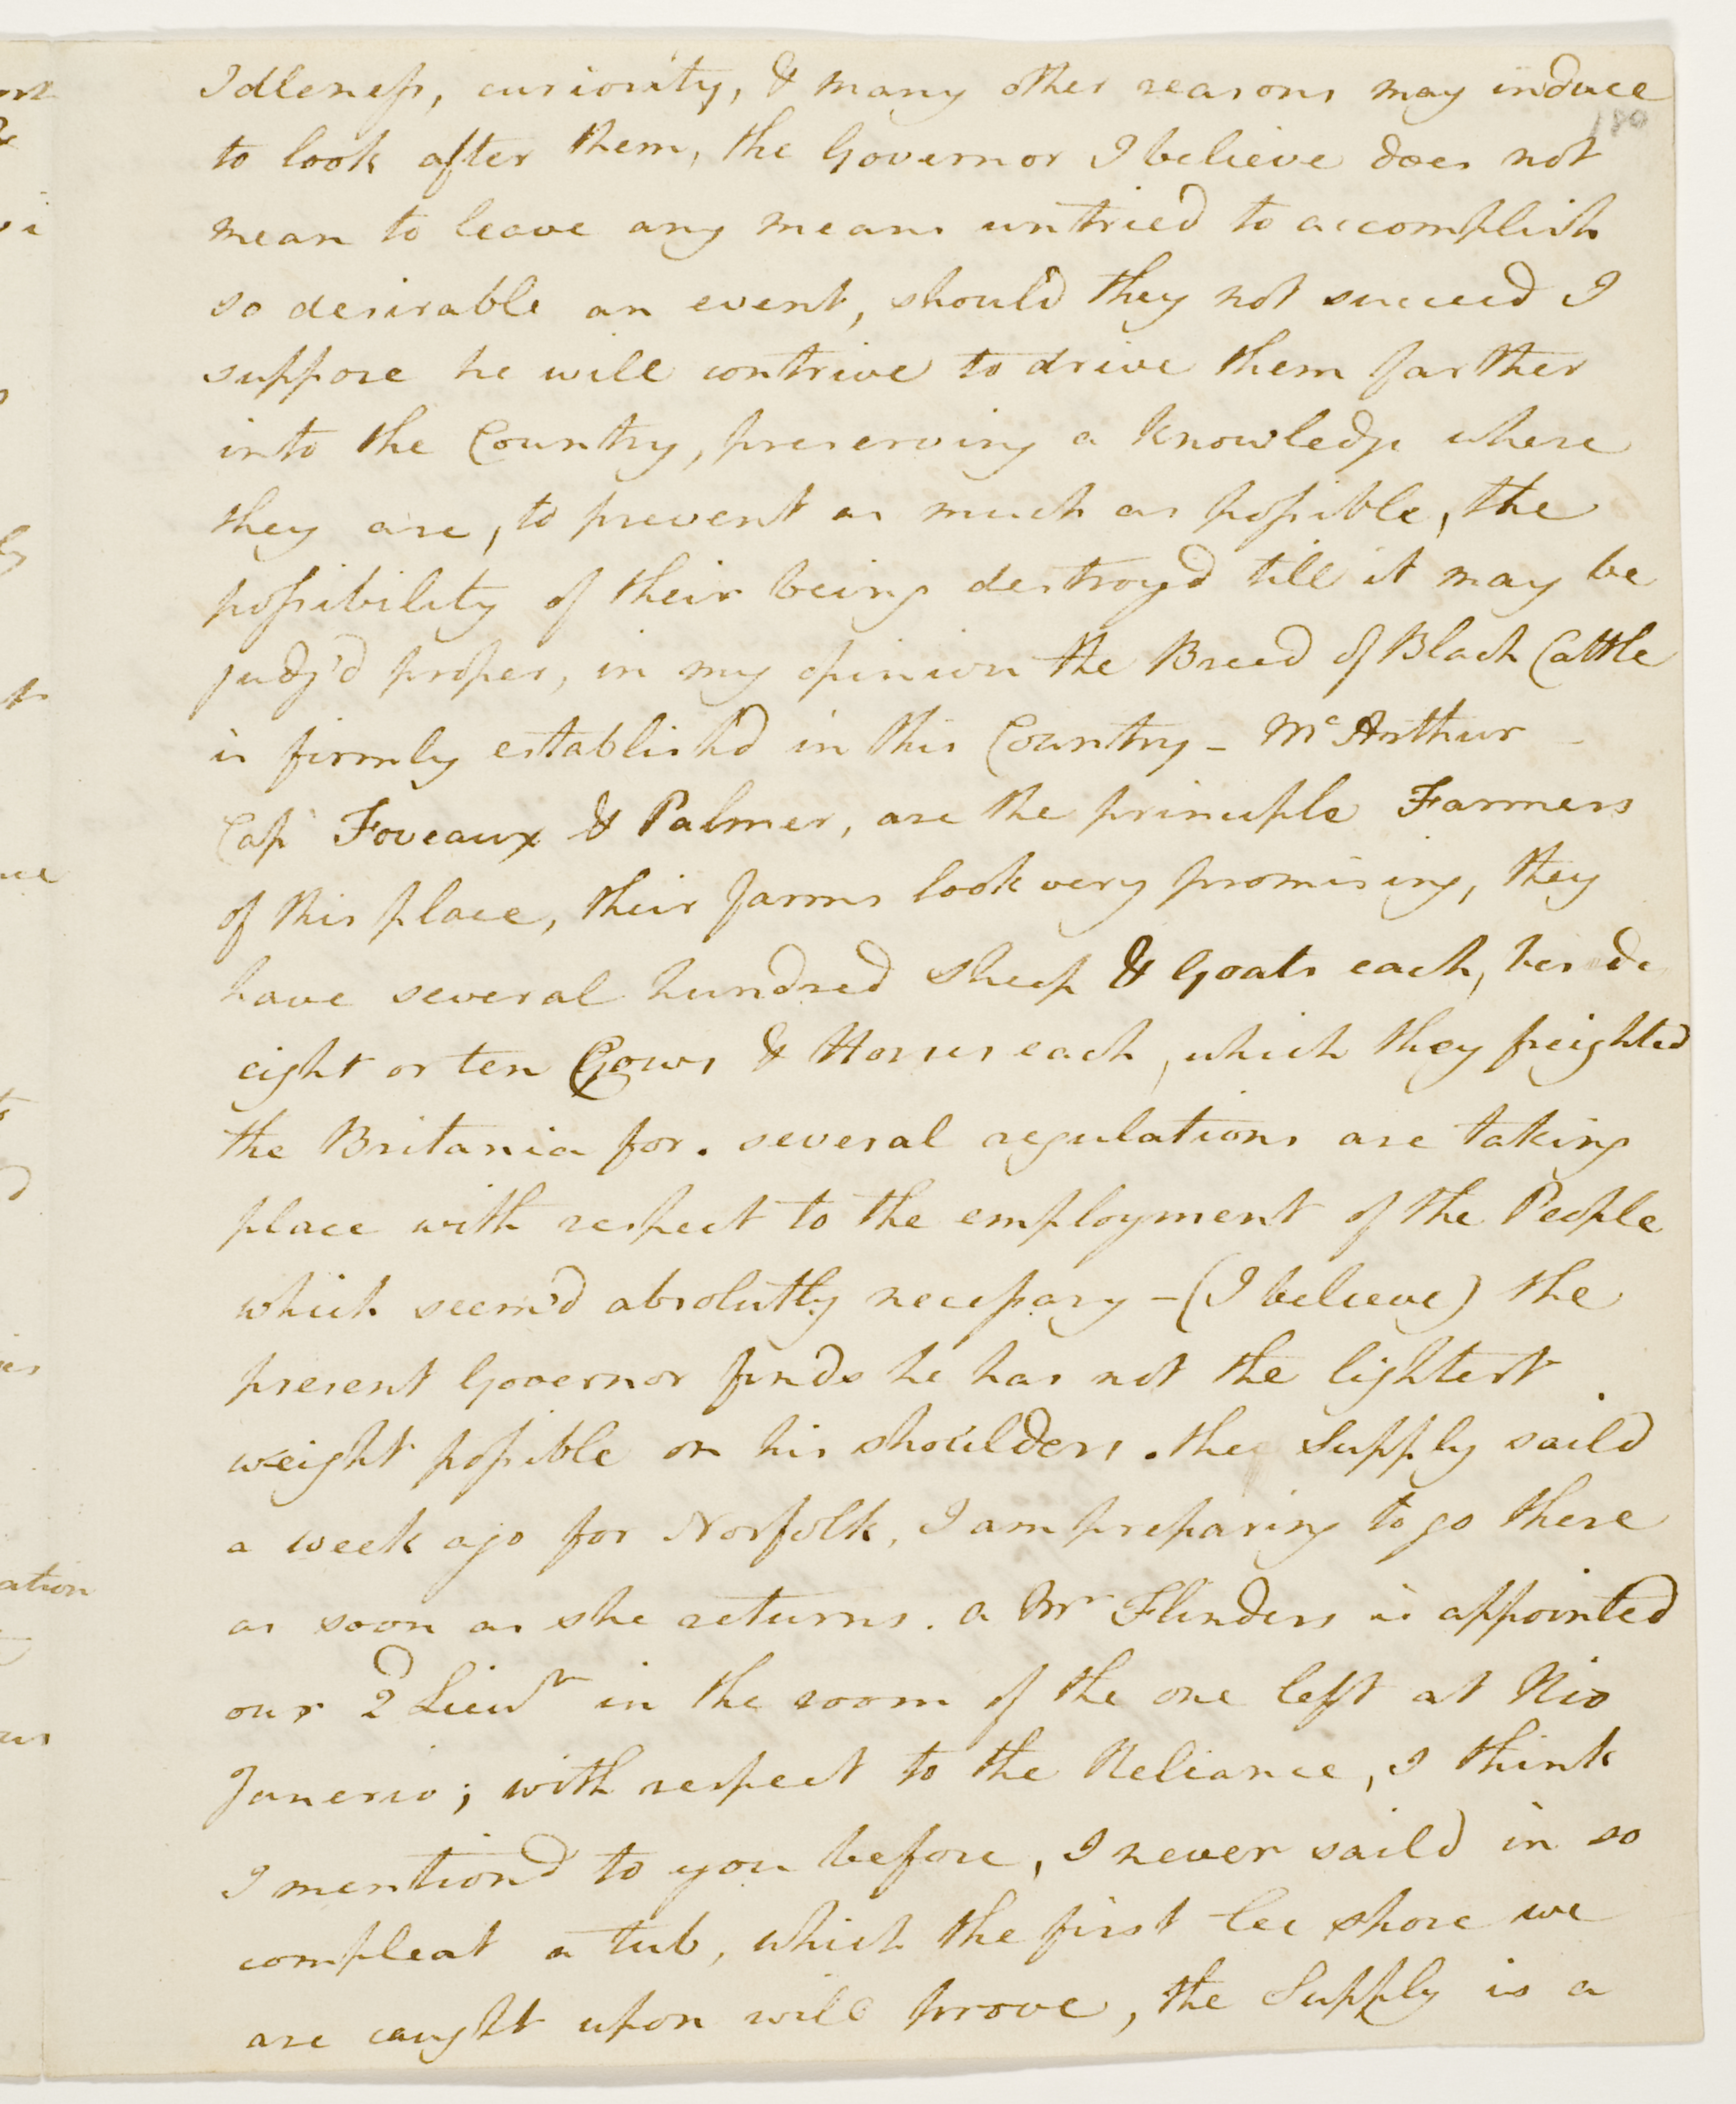 Idleness, curiosity, & many other reasons may induce
180
to look after them, the Governor I believe does not
mean to leave any means untried to accomplish
so desirable an event, should they not succeed I
suppose he will contrive to drive them farther
into the Country, preserving a knowledge where
they are, to prevent as much as possible, the
possibility of their being destroy'd till it may be
judg'd proper, in my opinion the Breed of Black Cattle
is firmly establish'd in this Country - McArthur -
Capt Foveaux & Palmer, are the principle Farmers
of this place, their farms look very promising, they
have several hundred sheep & Goats each, beside
eight or ten Cows & Horses each, which they freighted
the Britania for. several regulations are taking
place with respect to the employment of the People
which seem'd absolutly necessary - (I believe) the
present Governor finds he has not the lightest
weight possible on his shoulders. the Supply saild
a week ago for Norfolk, I am preparing to go there
as soon as she returns. a Mr Flinders is appointed
our 2d Lieut in the room of the one left at Rio
Janerio; with respect to the Reliance, I think
I mention'd to you before, I never saild in so
compleat a tub, which the first lee shore we
are caught upon will prove, the Supply is a
ation